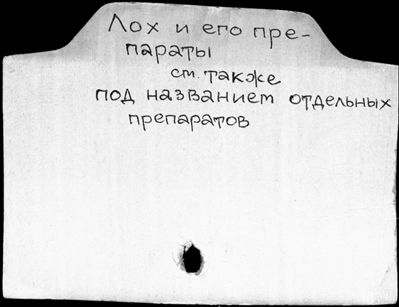 Лох и его пре-
параты
см. также
под названием отдельных
препаратов